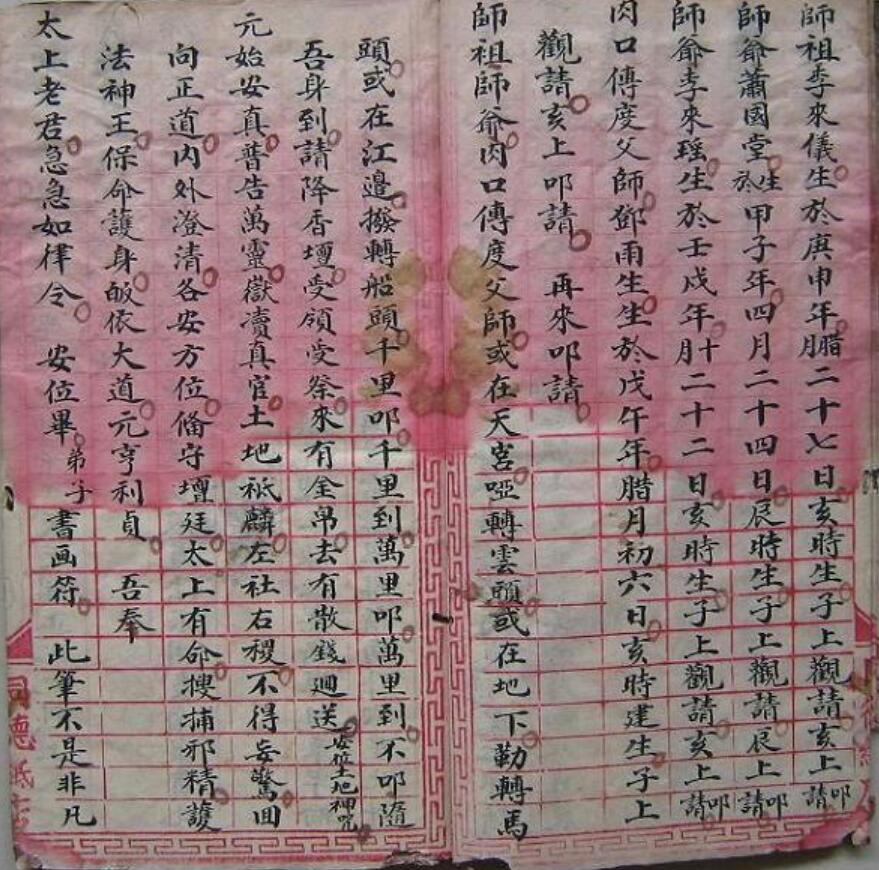 師祖李來儀生於庚申年腊月二十七日亥時生子上觀請亥上叩請
師爺蕭國堂生於甲子年四月二十四日辰時生子上觀請辰上叩請
師爺李來瑤生於壬戌年十月二十二日亥時生子上觀請亥上叩請
肉口傳度父師鄧雨生生於戊午年腊月初六日亥時建生子上
觀請亥上叩請 再來叩請
師祖師爺肉口傳度父師或在天宮啞轉雲頭或在地下勒轉馬
頭或在江邊撥轉船頭千里叩千里到萬里叩萬里到不叩隨
吾身到請降香壇受領受祭來有金帛去有散錢迴送 安位土地神咒
元始安真普告萬靈嶽凟真官土地祇麟左社右稷不得妄驚回
向正道內外澄清各安方位俻守壇廷太上有命搜捕邪精護
法神王保命護身皈依大道元亨利貞 吾奉
太上老君急急如律令 安位畢 弟子書画符 此筆不是非凡
同德紙